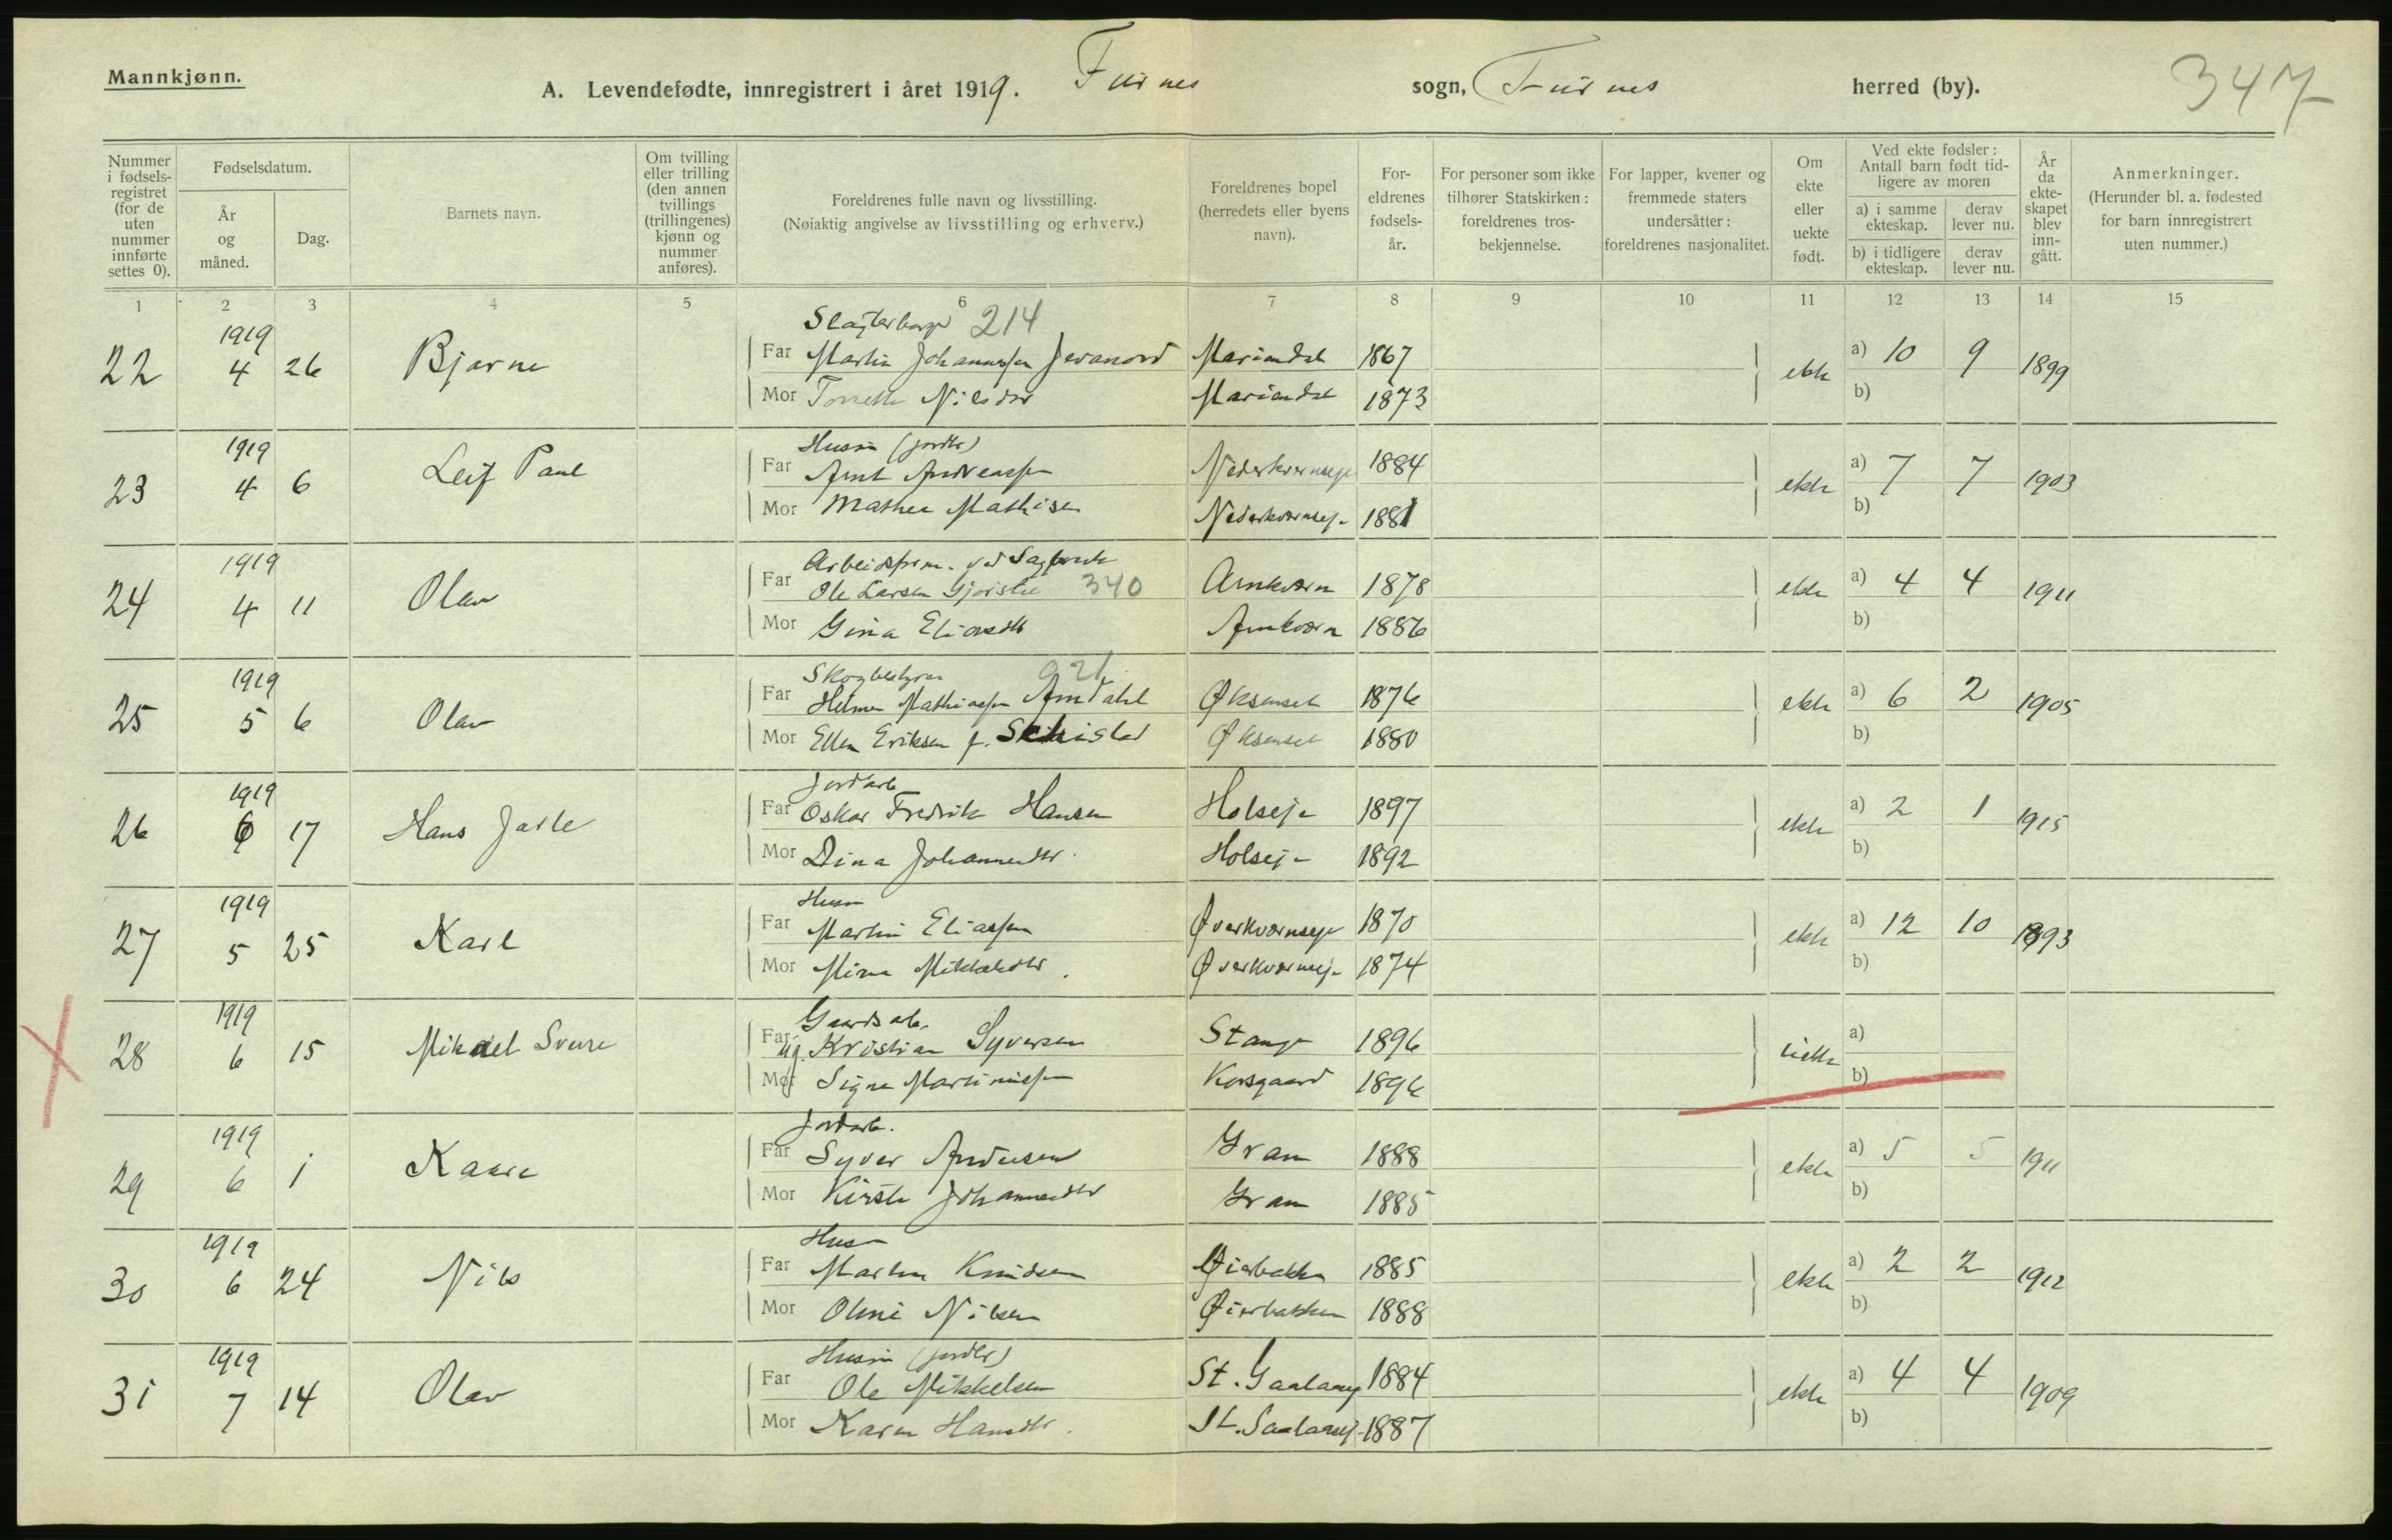 Mannkjønn.
A. Levendefødte, innregistrert i året 1919. Furnes sogn, Furnes herred (by). 347
Nummer i fødsels-registret (for de uten nummer innførte settes 0).
Fødselsdatum.
År og måned.
Dag.
Barnets navn.
Om tvilling eller trilling (den annen tvillings (trillingenes) kjønn og nummer anføres).
Foreldrenes fulle navn og livsstilling.
(Nøiaktig angivelse av livsstilling og erhverv.)
Foreldrenes bopel (herredets eller byens navn).
For-eldrenes fødsels-år.
For personer som ikke tilhører Statskirken: foreldrenes tros-bekjennelse.
For lapper, kvener og fremmede staters undersåtter: foreldrenes nasjonalitet.
Om ekte eller uekte født.
Ved ekte fødsler: Antall barn født tid-ligere av moren
a) i samme ekteskap. derav lever nu.
b) i tidligere ekteskap. derav lever nu.
År da ekte-skapet blev inn-gått.
Anmerkninger.
(Herunder bl. a. fødested for barn innregistrert uten nummer.)
1 2 3 4 5 6 7 8 9 10 11 12 13 14 15
1919 214
22 4 26 Bjarne Far Martin Johannesen Mariendal 1867 ekte a) 10 9 1899
Mor Nilsdtr Mariendal 1873 b)
1919 Husm (jordbr)
23 4 6 Leif Paul Far Arnt Andreassen Nederkværnseje 1884 ekte a) 7 7 1903
Mor Mathea Mathisen Nederkværnseje 1881 b)
1919 Arbeidsform. ved Sagbruk
24 4 11 Olav Far Ole Larsen 340 Arnkværn 1878 ekte a) 4 4 1911
Mor Gina Eliasdtr Arnkværn 1886 b)
1919 Skogbestyrer 921
25 5 6 Olav Far Helmer Mathiassen Amdahl Øksenset 1876 ekte a) 6 2 1905
Mor Ellen Eriksen f. Øksenset 1880 b)
1919 Jordarb
26 6 17 Hans Jarle Far Oskar Fredrik Hansen Holseje 1897 ekte a) 2 1 1915
Mor Dina Johannesdtr Holseje 1892 b)
1919 Husm
27 5 25 Karl Far Martin Eliassen Øverkværnseje 1870 ekte a) 12 10 1893
Mor Mina Mikkelsdtr. Øverkværnseje 1874 b)
1919 Gaardsarb.
28 6 15 Mikael Sverre Far Ug. Kristian Syversen Stange 1896 uekte a)
Mor Signe Martiniussen Korsgaard 1896 b)
1919 Jordarb.
29 6 1 Kaare Far Syver Andersen Gran 1888 ekte a) 5 5 1911
Mor Kirsti Johannesdtr Gran 1885 b)
1919 Husm
30 6 24 Nils Far Martin Knudsen Øierbakken 1885 ekte a) 2 2 1912
Mor Nilsen Øierbakken 1888 b)
1919 Husm (jordbr)
31 7 14 Olav Far Ole Mikkelsen 1884 ekte a) 4 4 1909
Mor Karen Hansdtr. 1887 b)